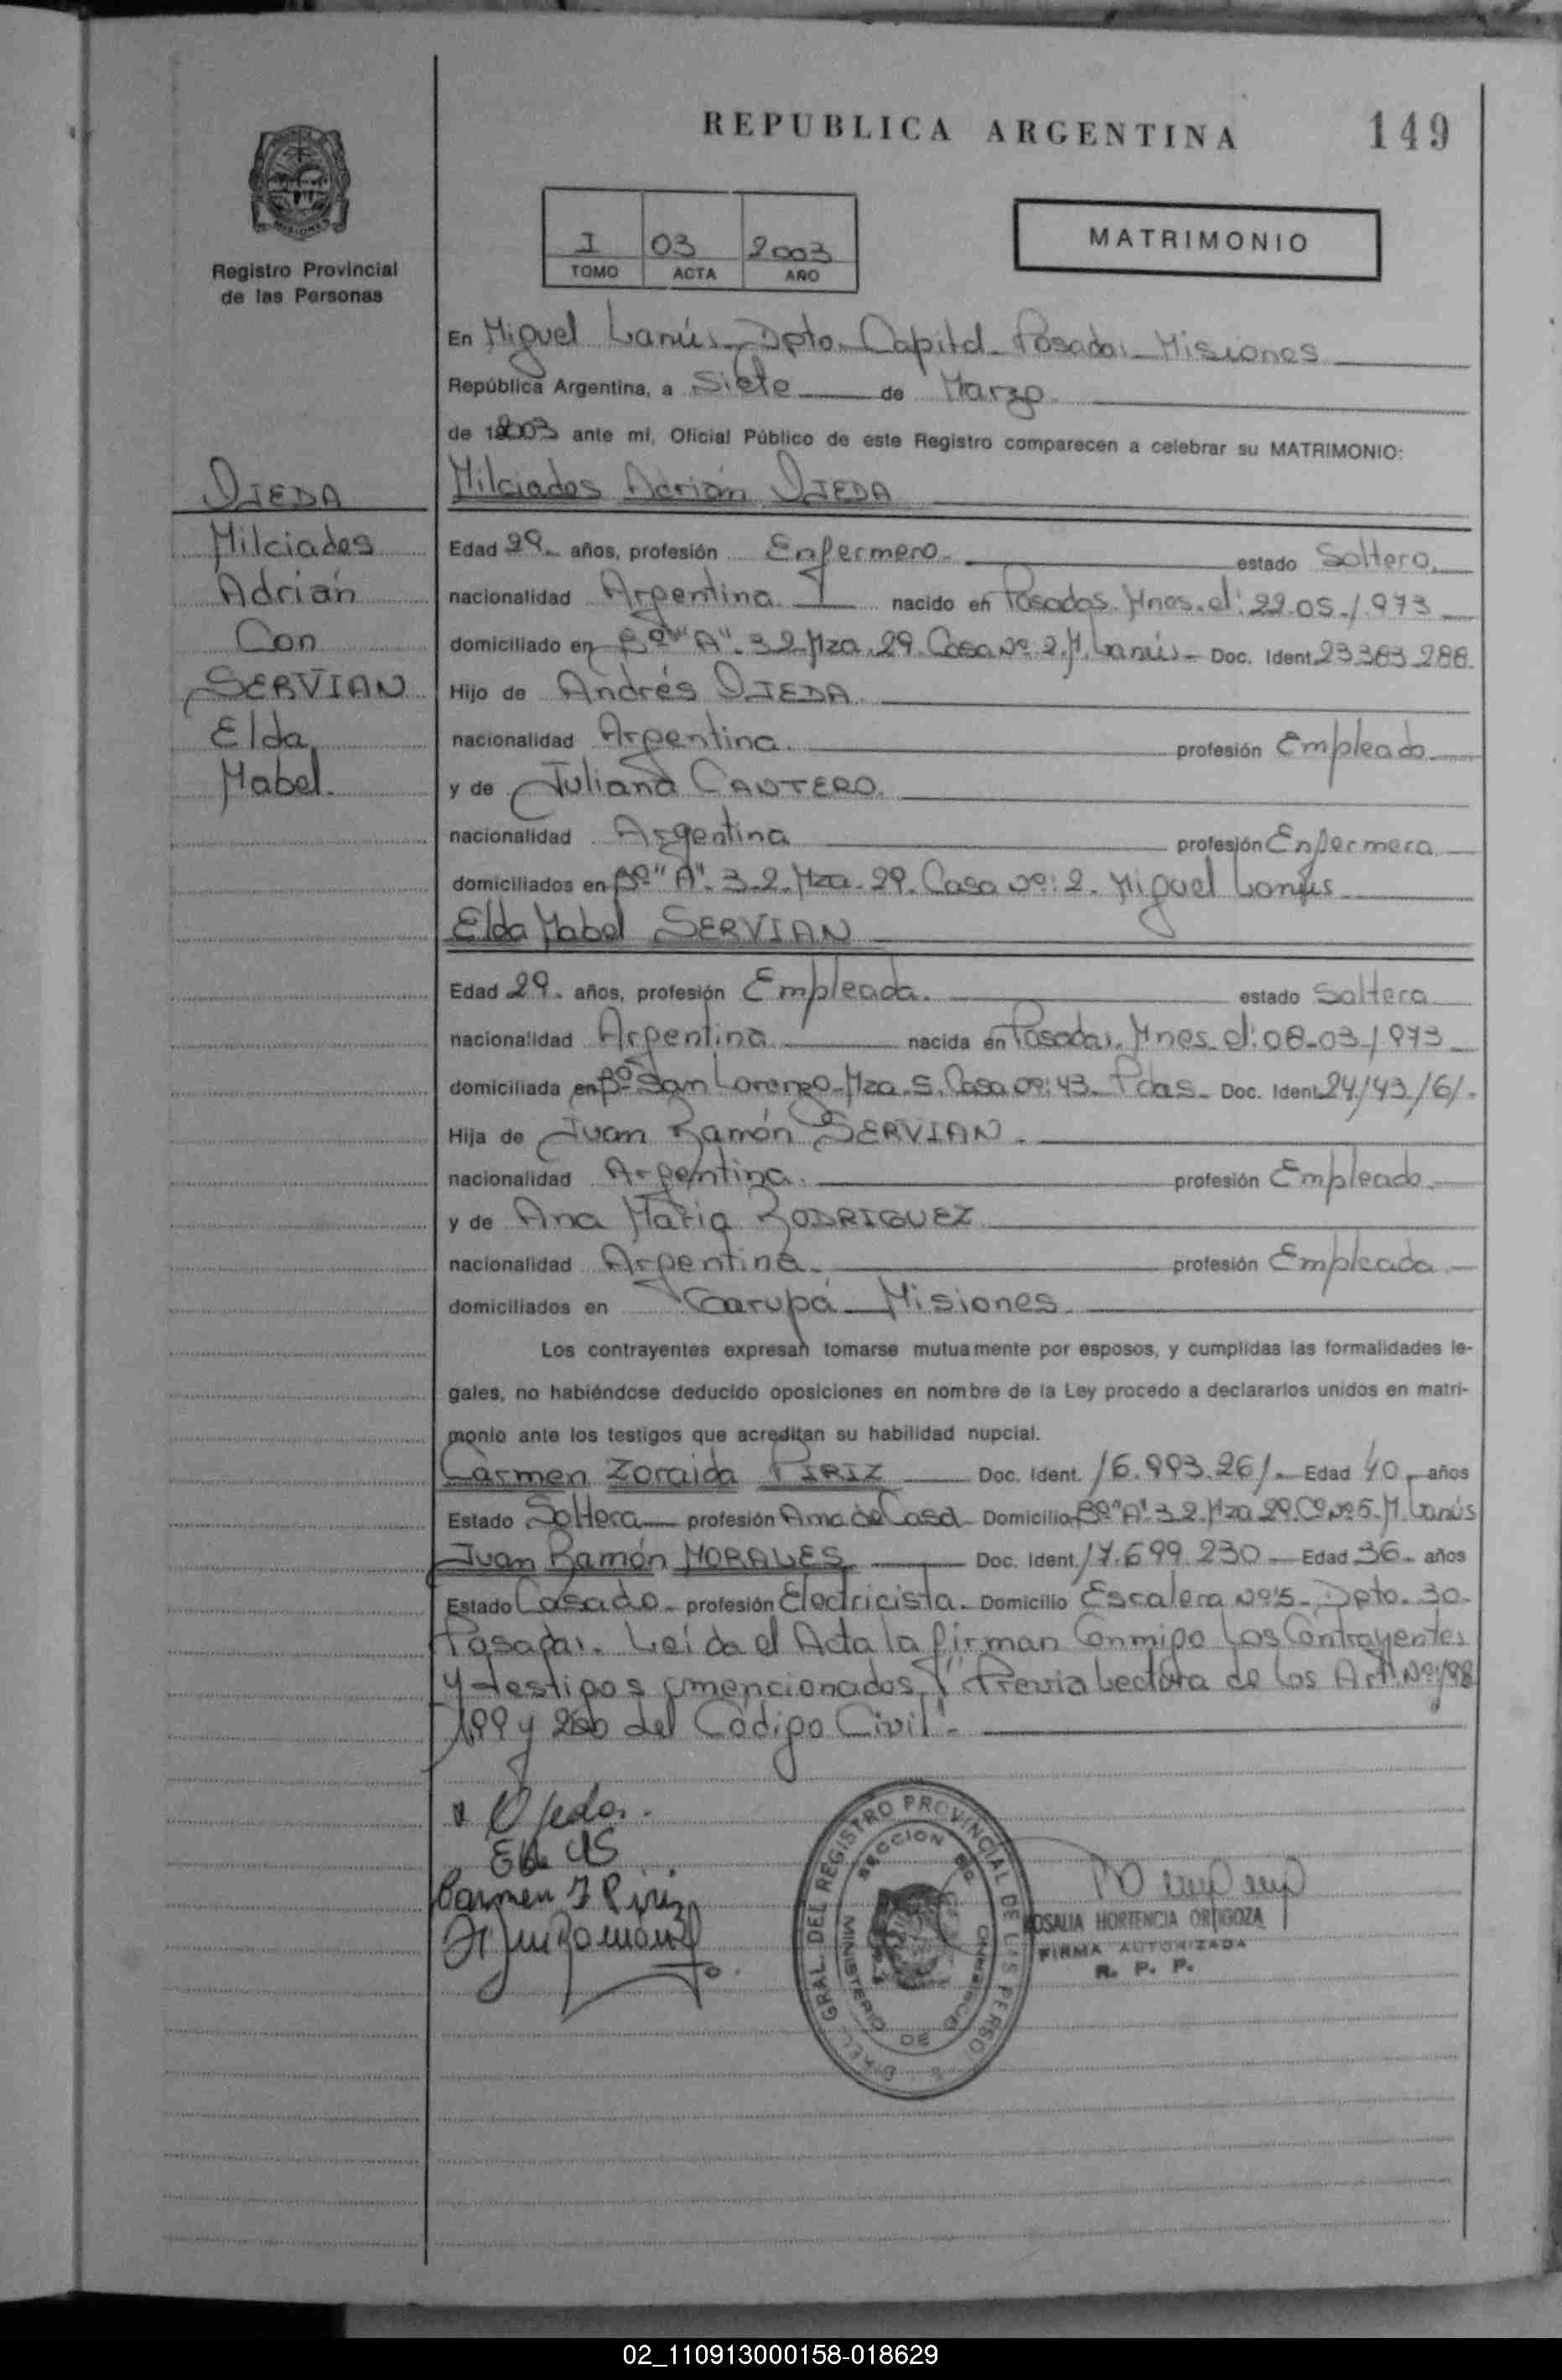 REPUBLICA ARGENTINA
149
Registro Provincial
de las Personas
I 03 2003
TOMO ACTA AÑO
MATRIMONIO
En Miguel Lanús - Dpto. Capital - Posadas - Misiones
República Argentina, a Siete de Marzo
de 2003 ante mí, Oficial Público de este Registro comparecen a celebrar su MATRIMONIO:
OJEDA
Milciades
Adrián
Con
SERVIAN
Elda
Mabel.
Milciades Adrián OJEDA
Edad 29. años, profesión Enfermero. estado Soltero.
nacionalidad Argentina nacido en Posadas. Mnes. el: 22.05.1973
domiciliado en Bº "A" 3-2-Mza. 29. Casa Nº 2. M. Lanús - Doc. Ident. 23.383.288.
Hijo de Andrés OJEDA
nacionalidad Argentina. profesión Empleado
y de Juliana CANTERO.
nacionalidad Argentina profesión Enfermera
domiciliados en Bº "A". 3-2. Mza. 29. Casa Nº: 2. Miguel Lanús
Elda Mabel SERVIAN
Edad 29. años, profesión Empleada. estado Soltera
nacionalidad Argentina nacida en Posadas. Mnes. el: 08-03-1973
domiciliada en Bº San Lorenzo - Mza. S. Casa Nº: 43. Pdas. Doc. Ident. 24.143.161.
Hija de Juan Ramón SERVIAN.
nacionalidad Argentina. profesión Empleado.
y de Ana María RODRIGUEZ
nacionalidad Argentina. profesión Empleada
domiciliados en Garupá - Misiones
Los contrayentes expresan tomarse mutuamente por esposos, y cumplidas las formalidades le-
gales, no habiéndose deducido oposiciones en nombre de la Ley procedo a declararlos unidos en matri-
monio ante los testigos que acreditan su habilidad nupcial.
Carmen Zoraida PIRIZ Doc. Ident. 16.993.261. Edad 40. años
Estado Soltera profesión Ama de Casa Domicilio Bº "A" 3-2. Mza 29. Cª Nº 5. M. Lanús
Juan Ramón MORALES Doc. Ident. 17.699.230 - Edad 36. años
Estado Casado. profesión Electricista. Domicilio Escalera Nº 5. Dpto. 30.
Posadas. Leída el Acta la firman Conmigo Los Contrayentes
y testigos mencionados. "Previa Lectura de los Art. Nº 198
199 y 200 del Código Civil".
Ojeda.
Carmen Z Piriz
DIREC. GRAL. DEL REGISTRO PROVINCIAL DE LAS PERSO
MINISTERIO DE GOBIERNO
SECCION
ROSALIA HORTENCIA ORTIGOZA
FIRMA AUTORIZADA
R. P. P.
02_110913000158-018629